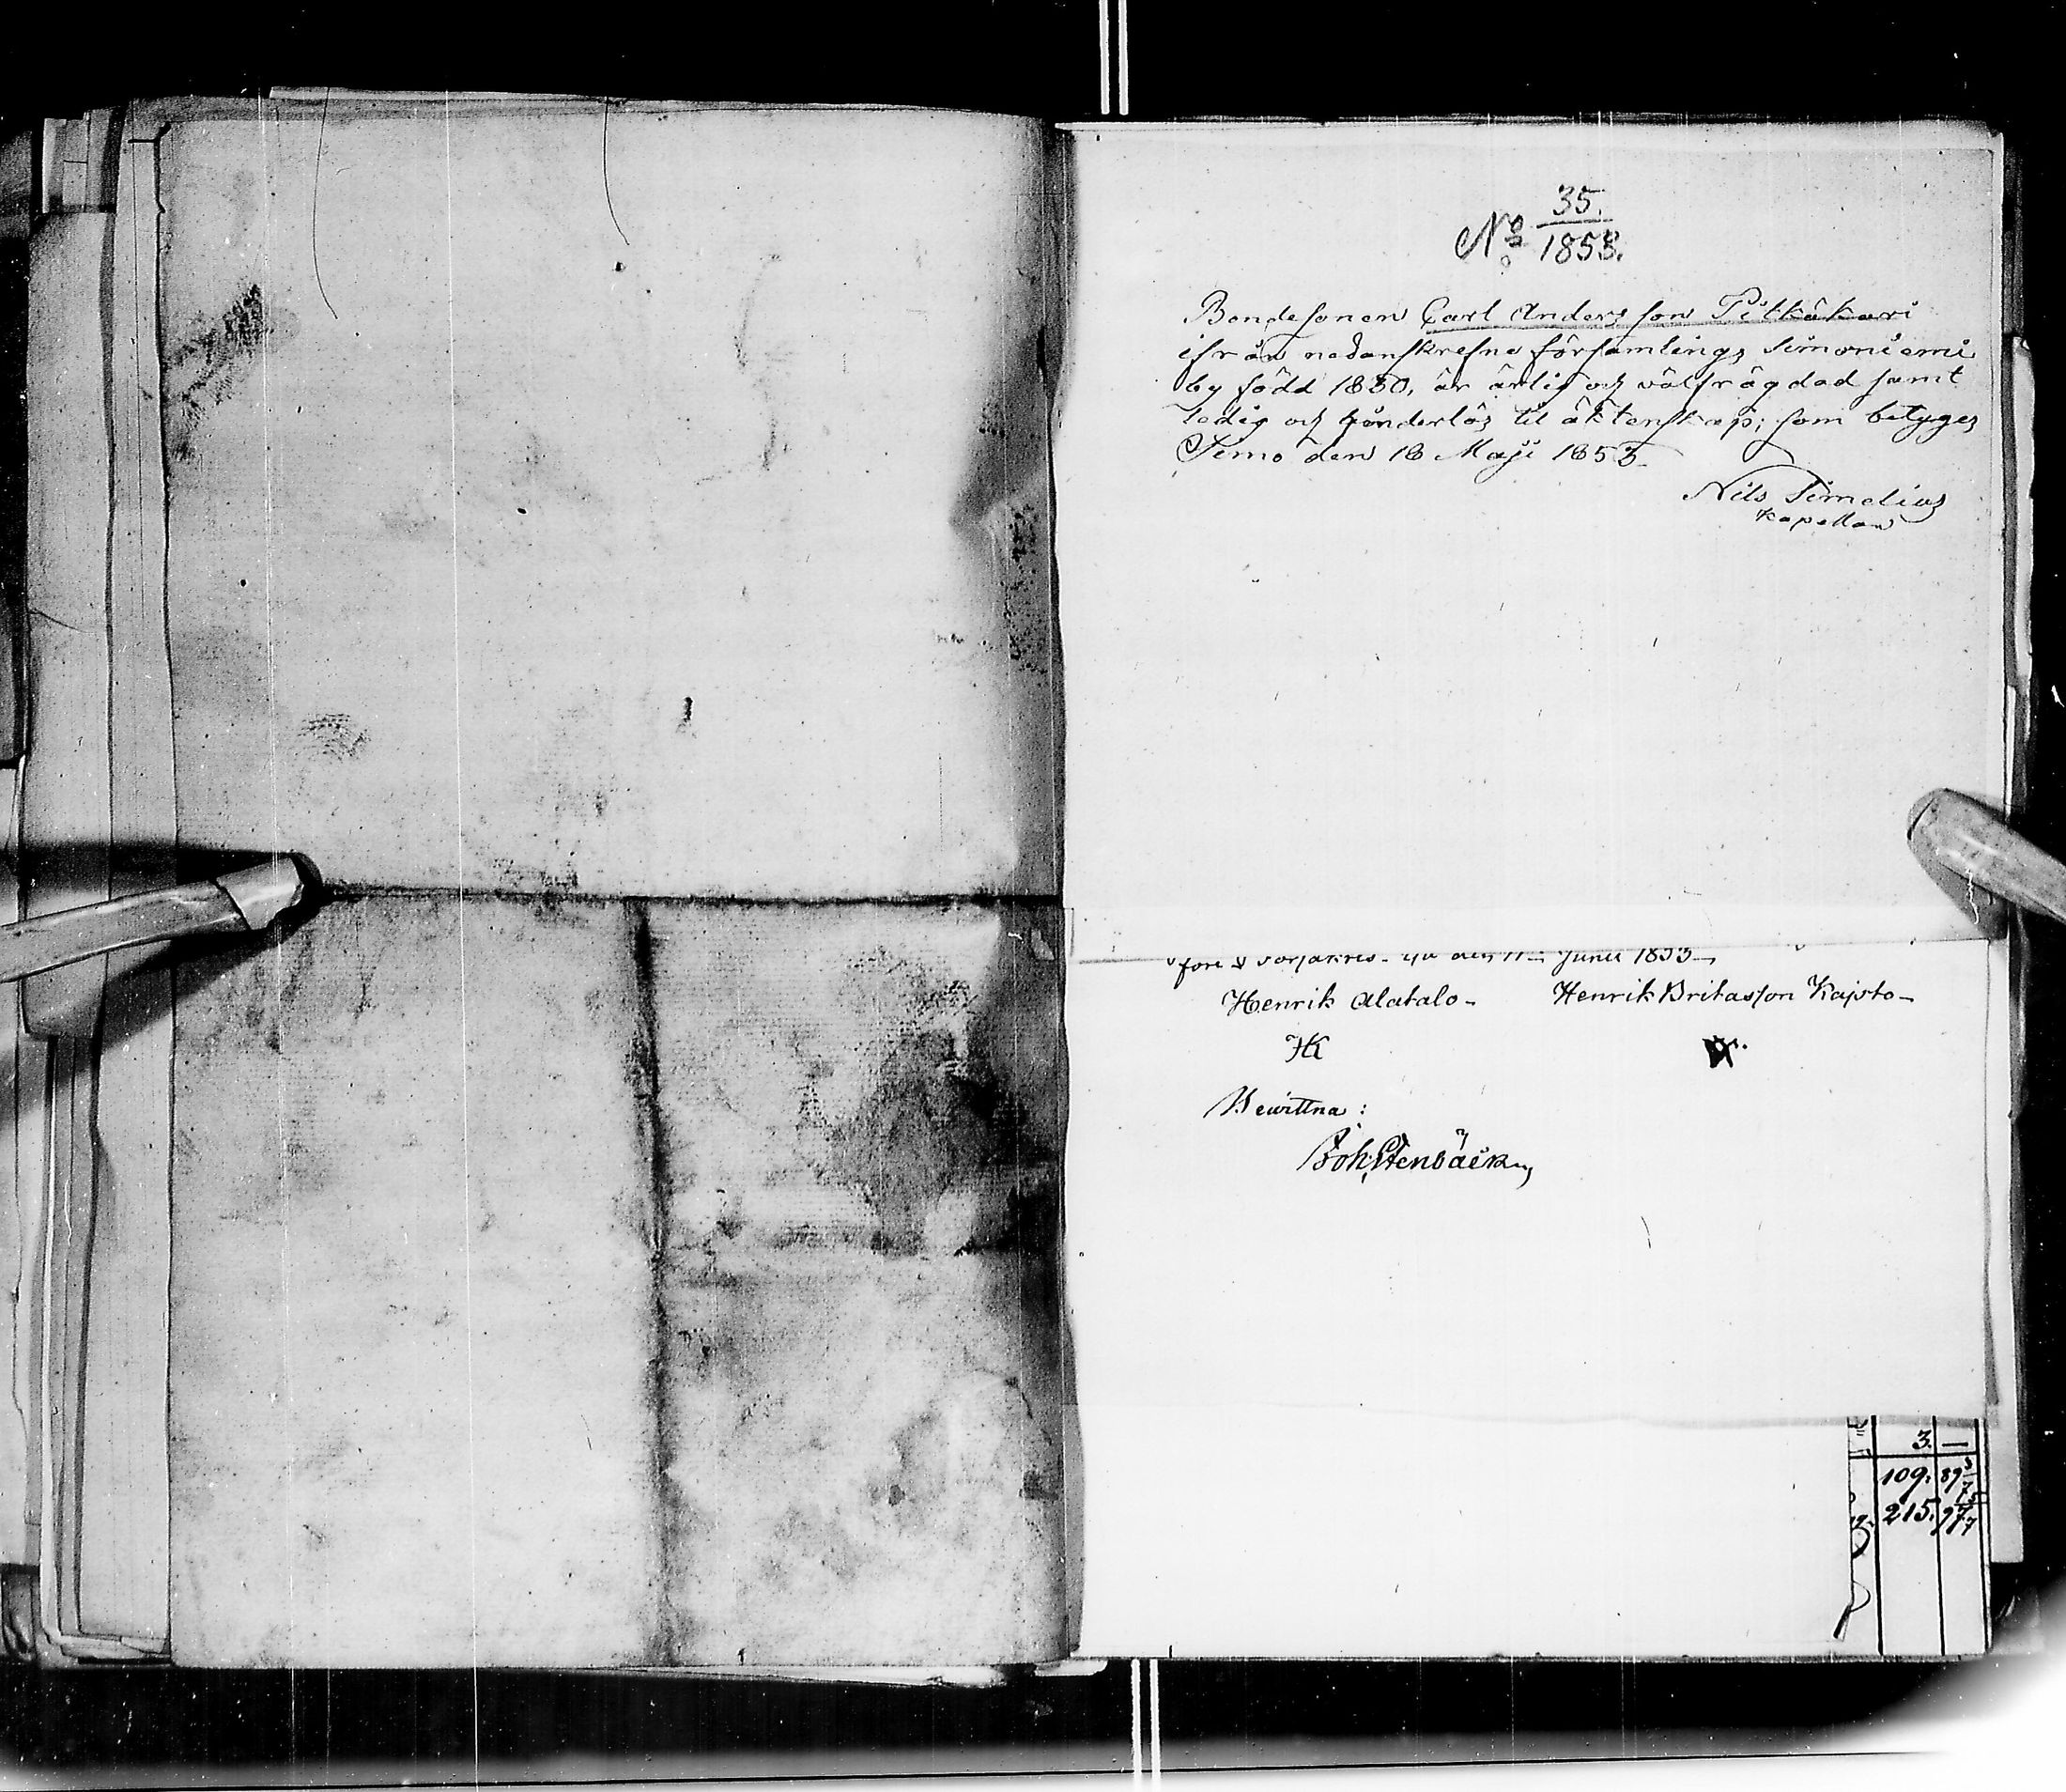 35.
No 1853.
Bondesonen Carl Andersson Pitkäkari
ifrån nedanskrefne församlings Simoniemi
by född 1830, är ärlig och välfrägdad samt
ledig och hinderlös til äktenskap; som betyges
Simo den 18 Maji 1853.
Nils Simelius
Kapellan
Junii 1853
Henrik Alatalo
Henrik Britasson Kajsto
HK
Bewittna:
Joh. Stenbäck
3. —
109. 89
215. 97